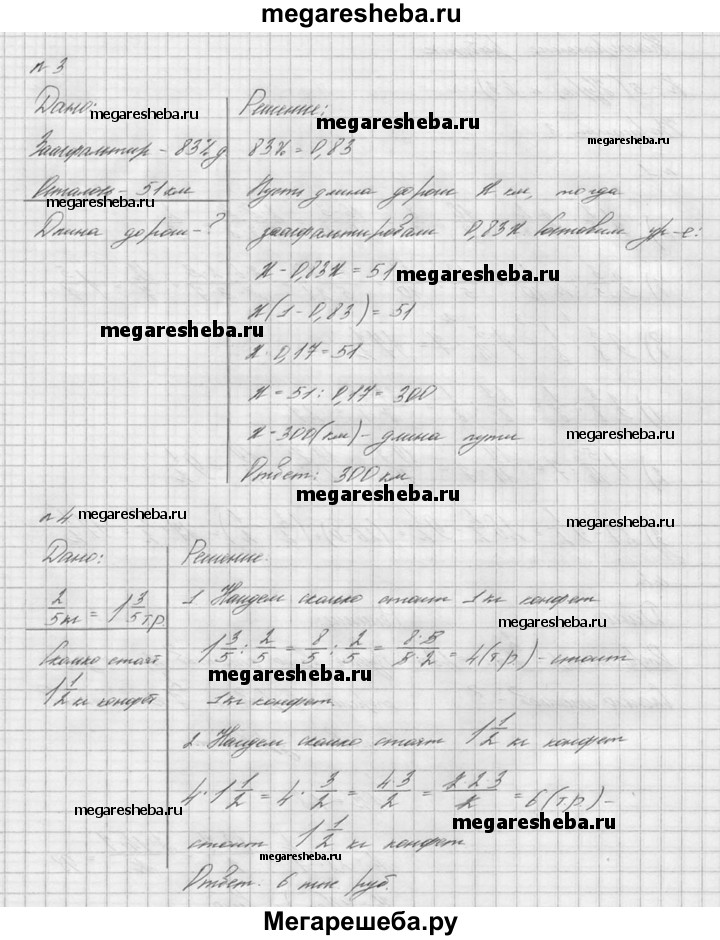 megaresheba.ru
№3
Дано: megaresheba.ru Решение: megaresheba.ru
Заасфальтир - 83% д 83% = 0,83 megaresheba.ru
Осталось - 51 км Пусть длина дороги x км, тогда
megaresheba.ru
Длина дороги - ? заасфальтировали 0,83x Составим ур-е:
x - 0,83x = 51 megaresheba.ru
x(1 - 0,83) = 51
megaresheba.ru
x · 0,17 = 51
x = 51 : 0,17 = 300
x = 300(км) - длина пути megaresheba.ru
Ответ: 300 км
megaresheba.ru
№4 megaresheba.ru megaresheba.ru
Дано: Решение.
2/5 кг = 1 3/5 т.р. 1 Найдем сколько стоит 1 кг конфет
megaresheba.ru
Сколько стоят 1 3/5 : 2/5 = 8/5 : 2/5 = 8·5/5·2 = 4(т.р) - стоит
megaresheba.ru
1 1/2 кг конфет 1 кг конфет
2 Найдем сколько стоят 1 1/2 кг конфет
4 · 1 1/2 = 4 · 3/2 = 4·3/2 = 2·2·3/2 = 6(т.р.) -
megaresheba.ru megaresheba.ru
стоит 1 1/2 кг конфет
megaresheba.ru
Ответ. 6 тыс руб.
Мегарешеба.ру